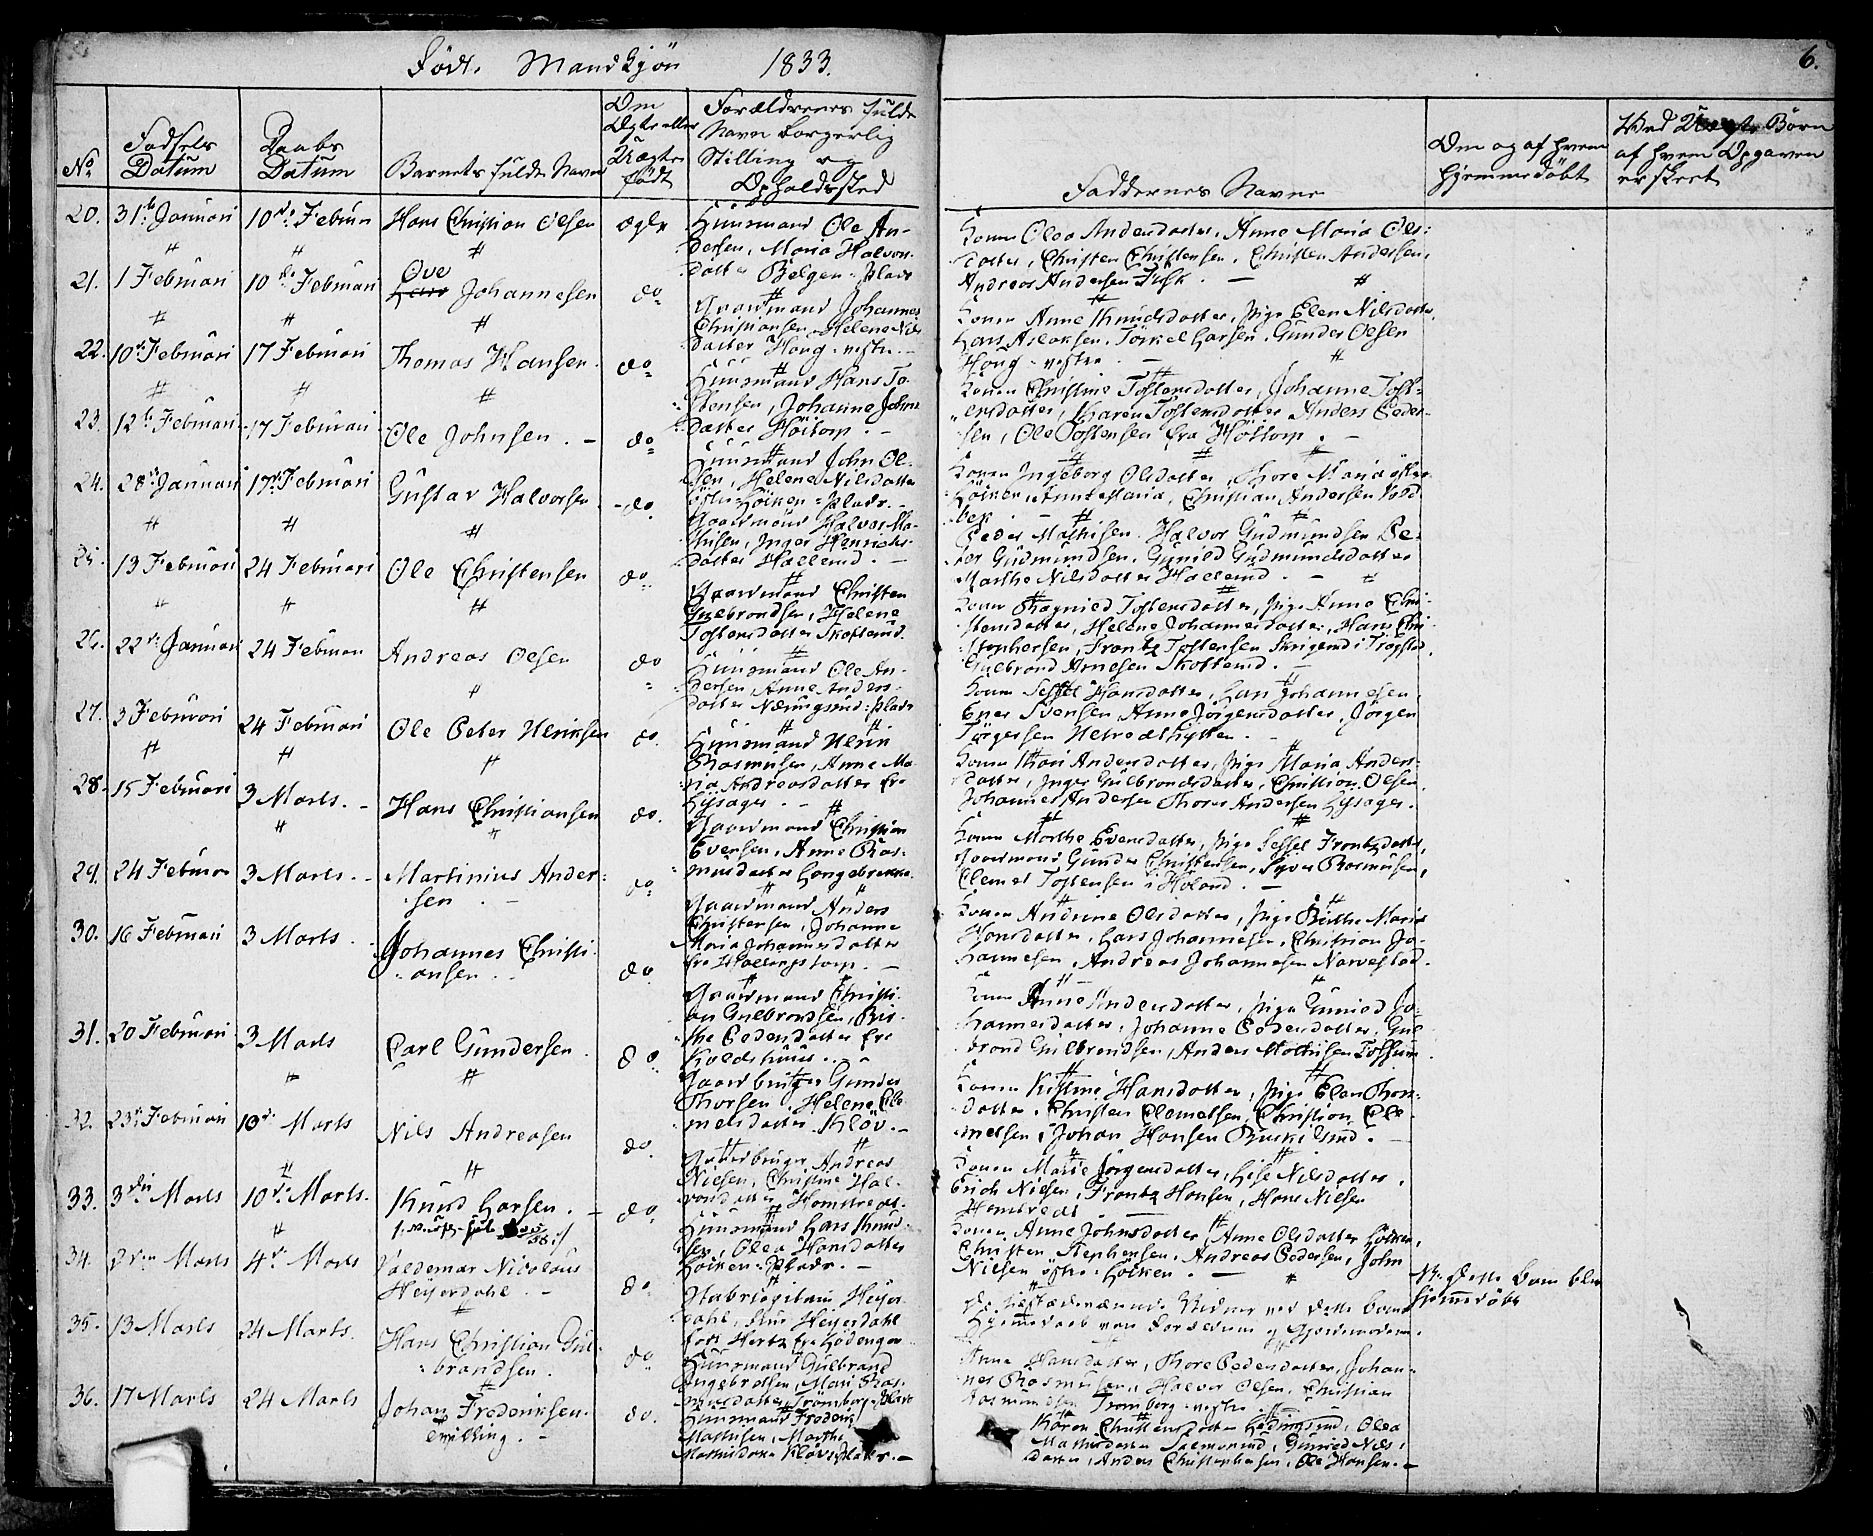 Födt. Mandkjön 1833.
6.
No
Fødsels Datum
Daabs Datum
Barnets fulde Navn
Om Ægte eller Uægte født
Forældrenes fulde Navn borgerlig Stilling og Opholdssted
Faddernes Navne
Om og af hvem hjemmedöbt
Ved Uægte Börn af hvem Opgaven er skeet
20. 31te Januari 10de Februari Hans Christian Olsen ægte
Huusmand Ole An-
dersen, Maria Halvors-
datter Belgen-Plads
Konen Olea Andersdatter, Anne Maria Ols-
datter, Christen Christensen, Christen Andersen,
Andreas Andersen Fusk. —
21. 1 Februari 10de Februari Ove Lars Johannesen do
Gaardmand Johannes
Christiansen, Helene Nils
datter Houg-vestre. —
Konen Anne Knudsdatter, Pige Elen Nilsdatter,
Lars Aslaksen, Törkel Larsen, Gunder Olsen
Houg-vestre. —
22. 10de Februari 17 Februari Thomas Hansen. do
Huusmand Hans To-
stensen, Johanne Johns
datter Höitorp. —
Konen Christine Tostensdatter, Johanne Tost-
ensdatter, Karen Tostensdatter Anders Peder-
sen, Ole Tostensen fra Höitorp. —
23. 12te Februari 17 Februari Ole Johnsen. — do
Huusmand John Ol-
sen, Helene Nilsdatter
östre-Löiken-Plads. —
Konen Ingeborg Olsdatter, Thore Maria östre
Löiken, Anne Maria, Christian Andersen Vold
bek. —
24. 28de Januari 17de Februari Gustav Halvorsen — do
Gaardmand Halvor Ma-
thisen, Inger Henrichs-
datter Hallerud. —
Peder Mathisen, Halvor Gudmundsen Pe-
der Gudmundsen, Gunild Gudmundsdatter
Marthe Nilsdatter Hallerud. —
25. 13 Februari 24 Februari Ole Christensen do
Gaardmand Christen
Gulbrandsen, Helene
Tostensdatter Skofterud.
Konen Ragnild Tostensdatter, Pige Anne Chri-
stensdatter, Helene Johannesdatter, Hans Chri-
stophersen, Frantz Tostensen Skrigerud i Trögstad,
Gulbrand Arnesen Skofterud. —
26. 22de Januari 24 Februari Andreas Olsen do
Huusmand Ole An-
dersen, Anne Anders-
datter Næringsrud-Plads
Konen Sessel Hansdatter, Lars Johannesen,
Ener Svensen, Anne Jörgensdatter, Jörgen
Torgersen
27. 3 Februari 24 Februari Ole Peter Henriksen do.
Huusmand Henrik
Rasmusen, Anne Ma-
ria Andreasdatter fra
Lysager. —
Konen Kari Andersdatter, Pige Maria Anders-
datter, Inger Gulbrandsdatter, Christian Olsen
Johannes Andersen Thores Andersen Lysager.
28. 15 Februari 3 Marts. — Hans Christiansen do.
Gaardmand Christian
Evensen, Anne Ras-
musdatter Langebrekke.
Konen Marthe Evensdatter, Pige Sessel Frantzdatter,
Gaardmand Gunder Christensen, Syver Rasmusen,
Clemet Tostensen i Höland. —
29. 24 Februari 3 Marts. — Martinius Ander-
sen — do
Gaardmand Anders
Christensen, Johanne
Maria Johannesdatter
fra Hallangstorp. —
Konen Andrine Olsdatter, Pige Berthe Maria
Hansdatter, Lars Johannesen, Christian Jo-
hannesen, Andreas Johannesen Narvestad.
30. 16 Februari 3 Marts. Johannes Christi-
ansen. — do
Gaardmand Christi-
an Gulbrandsen, Bir-
the Pedersdatter fra
Koldshuus. —
Konen Anne Andersdatter, Pige Gunild Jo-
hannesdatter, Johanne Pedersdatter, Gul-
brand Gulbrandsen, Anders Mathisen Tossum.
31. 20 Februari 3 Marts Carl Gundersen do.
Gaardbruger Gunder
Thorsen, Helene Cle-
metsdatter Klöv. —
Konen Kistine Hansdatter, Pige Elen Thors-
datter, Christen Clemetsen, Christian Cle-
metsen, Johan Hansen
32. 23de Februari 10de Marts Nils Andreasen do.
Gaardbruger Andreas
Nielsen, Christine Hal-
vorsdatter
Konen Marie Jörgensdatter, Lise Nilsdatter,
Erich Nielsen, Frantz Hansen, Hans Nielsen
33. 3die Marts 10de Marts. Knud Larsen. — do.
Huusmand Lars Knud-
sen, Olea Hansdatter
Löiken-Plads. —
Konen Anne Johnsdatter, Anne Olsdatter Löiken,
Christen Stephensen, Andreas Pedersen, John
Nielsen östre-Löiken. —
34. 2den Marts 4de Marts Valdemar Nicolaus
Heyerdahl. — do
Heyer-
dahl, Frue Heyerdahl
föd Hertz fra Rödenges
NB. dette barn blev
hjemmedöbt
35. 13 Marts 24 Marts. Hans Christian Gul-
brandsen. do
Huusmand Gulbrand
Ingebretsen, Mari Ras-
musdatter Trömborg-Plads
Anna Hansdatter, Thore Pedersdatter, Johan-
nes Rasmusen, Halvor Olsen, Christian
Trömborg-vestre.
36. 17 Marts 24 Marts Johan Frederiksen.
Tvilling. — do.
Huusmand Frederik
Mathisen, Marthe
Mathisdatter Klövs Plads. —
Karen Christensdatter Olea
Mathisdatter Gunild Nils-
datter, Anders Christophersen, Ole Hansen. —